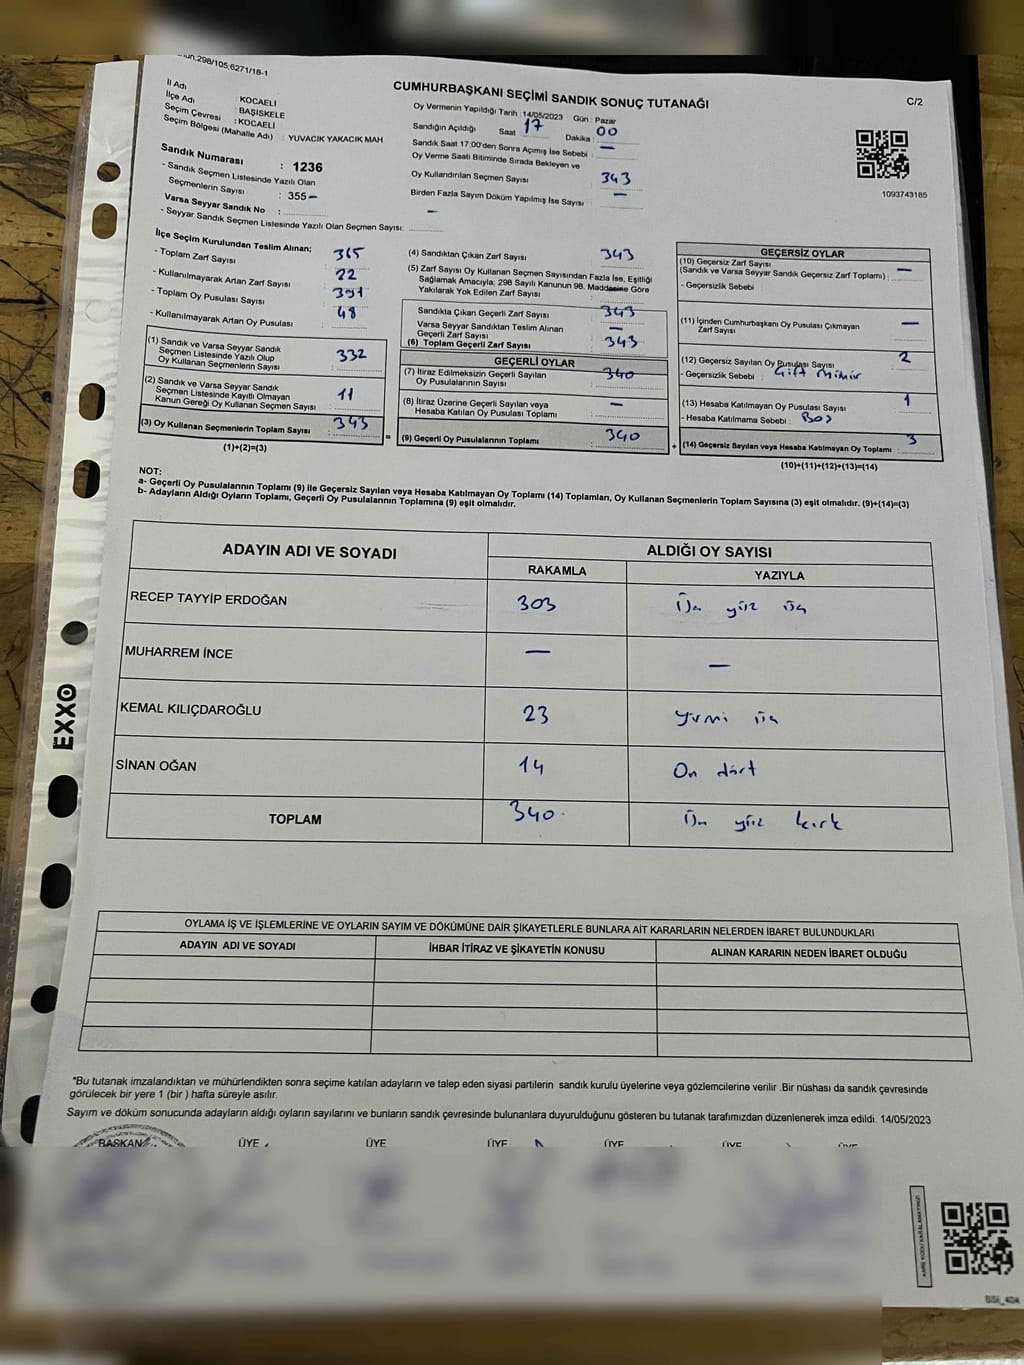 298/105;6271/18-1
CUMHURBAŞKANI SEÇİMİ SANDIK SONUÇ TUTANAĞI
C/2
İl Adı : KOCAELİ
İlçe Adı : BAŞİSKELE
Seçim Çevresi : KOCAELİ
Seçim Bölgesi (Mahalle Adı) : YUVACIK YAKACIK MAH
Sandık Numarası : 1236
- Sandık Seçmen Listesinde Yazılı Olan
Seçmenlerin Sayısı : 355 –
Varsa Seyyar Sandık No :
- Seyyar Sandık Seçmen Listesinde Yazılı Olan Seçmen Sayısı: –
Oy Vermenin Yapıldığı Tarih :14/05/2023 Gün : Pazar
Sandığın Açıldığı Saat 17 Dakika : 00
Sandık Saat 17:00'den Sonra Açımış İse Sebebi : –
Oy Verme Saati Bitiminde Sırada Bekleyen ve
Oy Kullandırılan Seçmen Sayısı : 343
Birden Fazla Sayım Döküm Yapılmış İse Sayısı : –
1093743185
İlçe Seçim Kurulundan Teslim Alınan;
- Toplam Zarf Sayısı : 365
- Kullanılmayarak Artan Zarf Sayısı : 22
- Toplam Oy Pusulası Sayısı : 391
- Kullanılmayarak Artan Oy Pusulası : 48
(1) Sandık ve Varsa Seyyar Sandık
Seçmen Listesinde Yazılı Olup
Oy Kullanan Seçmenlerin Sayısı : 332
(2) Sandık ve Varsa Seyyar Sandık
Seçmen Listesinde Kayıtlı Olmayan
Kanun Gereği Oy Kullanan Seçmen Sayısı : 11
(3) Oy Kullanan Seçmenlerin Toplam Sayısı : 343
(1)+(2)=(3)
=
(4) Sandıktan Çıkan Zarf Sayısı : 343
(5) Zarf Sayısı Oy Kullanan Seçmen Sayısından Fazla İse, Eşitliği
Sağlamak Amacıyla, 298 Sayılı Kanunun 98. Maddesine Göre
Yakılarak Yok Edilen Zarf Sayısı : –
Sandıkta Çıkan Geçerli Zarf Sayısı : 343
Varsa Seyyar Sandıktan Teslim Alınan
Geçerli Zarf Sayısı : –
(6) Toplam Geçerli Zarf Sayısı : 343
GEÇERLİ OYLAR
(7) İtiraz Edilmeksizin Geçerli Sayılan
Oy Pusulalarının Sayısı : 340
(8) İtiraz Üzerine Geçerli Sayılan veya
Hesaba Katılan Oy Pusulası Toplamı : –
(9) Geçerli Oy Pusulalarının Toplamı : 340
+
GEÇERSİZ OYLAR
(10) Geçersiz Zarf Sayısı
(Sandık ve Varsa Seyyar Sandık Geçersiz Zarf Toplamı) : –
- Geçersizlik Sebebi :
(11) İçinden Cumhurbaşkanı Oy Pusulası Çıkmayan
Zarf Sayısı : –
(12) Geçersiz Sayılan Oy Pusulası Sayısı : 2
- Geçersizlik Sebebi : Çift
(13) Hesaba Katılmayan Oy Pusulası Sayısı : 1
- Hesaba Katılmama Sebebi : Boş
(14) Geçersiz Sayılan veya Hesaba Katılmayan Oy Toplamı : 3
(10)+(11)+(12)+(13)=(14)
NOT:
a- Geçerli Oy Pusulalarının Toplamı (9) ile Geçersiz Sayılan veya Hesaba Katılmayan Oy Toplamı (14) Toplamları, Oy Kullanan Seçmenlerin Toplam Sayısına (3) eşit olmalıdır. (9)+(14)=(3)
b- Adayların Aldığı Oyların Toplamı, Geçerli Oy Pusulalarının Toplamına (9) eşit olmalıdır.
ADAYIN ADI VE SOYADI ALDIĞI OY SAYISI
RAKAMLA YAZIYLA
RECEP TAYYİP ERDOĞAN 303 Üç yüz üç
MUHARREM İNCE – –
KEMAL KILIÇDAROĞLU 23 Yirmi üç
SİNAN OĞAN 14 On dört
TOPLAM 340 Üç yüz kırk
OYLAMA İŞ VE İŞLEMLERİNE VE OYLARIN SAYIM VE DÖKÜMÜNE DAİR ŞİKAYETLERLE BUNLARA AİT KARARLARIN NELERDEN İBARET BULUNDUKLARI
ADAYIN ADI VE SOYADI İHBAR İTİRAZ VE ŞİKAYETİN KONUSU ALINAN KARARIN NEDEN İBARET OLDUĞU
*Bu tutanak imzalandıktan ve mühürlendikten sonra seçime katılan adayların ve talep eden siyasi partilerin sandık kurulu üyelerine veya gözlemcilerine verilir .Bir nüshası da sandık çevresinde
görülecek bir yere 1 (bir ) hafta süreyle asılır.
Sayım ve döküm sonucunda adayların aldığı oyların sayılarını ve bunların sandık çevresinde bulunanlara duyurulduğunu gösteren bu tutanak tarafımızdan düzenlenerek imza edildi. 14/05/2023
BAŞKAN ÜYE ÜYE ÜYE ÜYE ÜYE ÜYE
EXXO